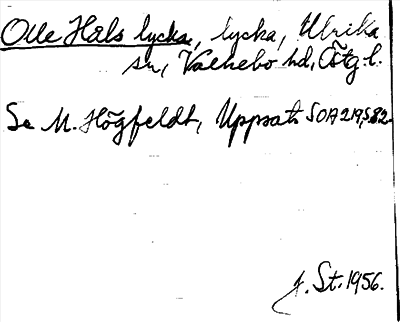 Olle Hals lycka, lycka, Ulrika
sn, Valkebo hd, Östg. l.
Se M. Högfeldt, Uppsats SOA 219, s. 82.
J. St. 1956.